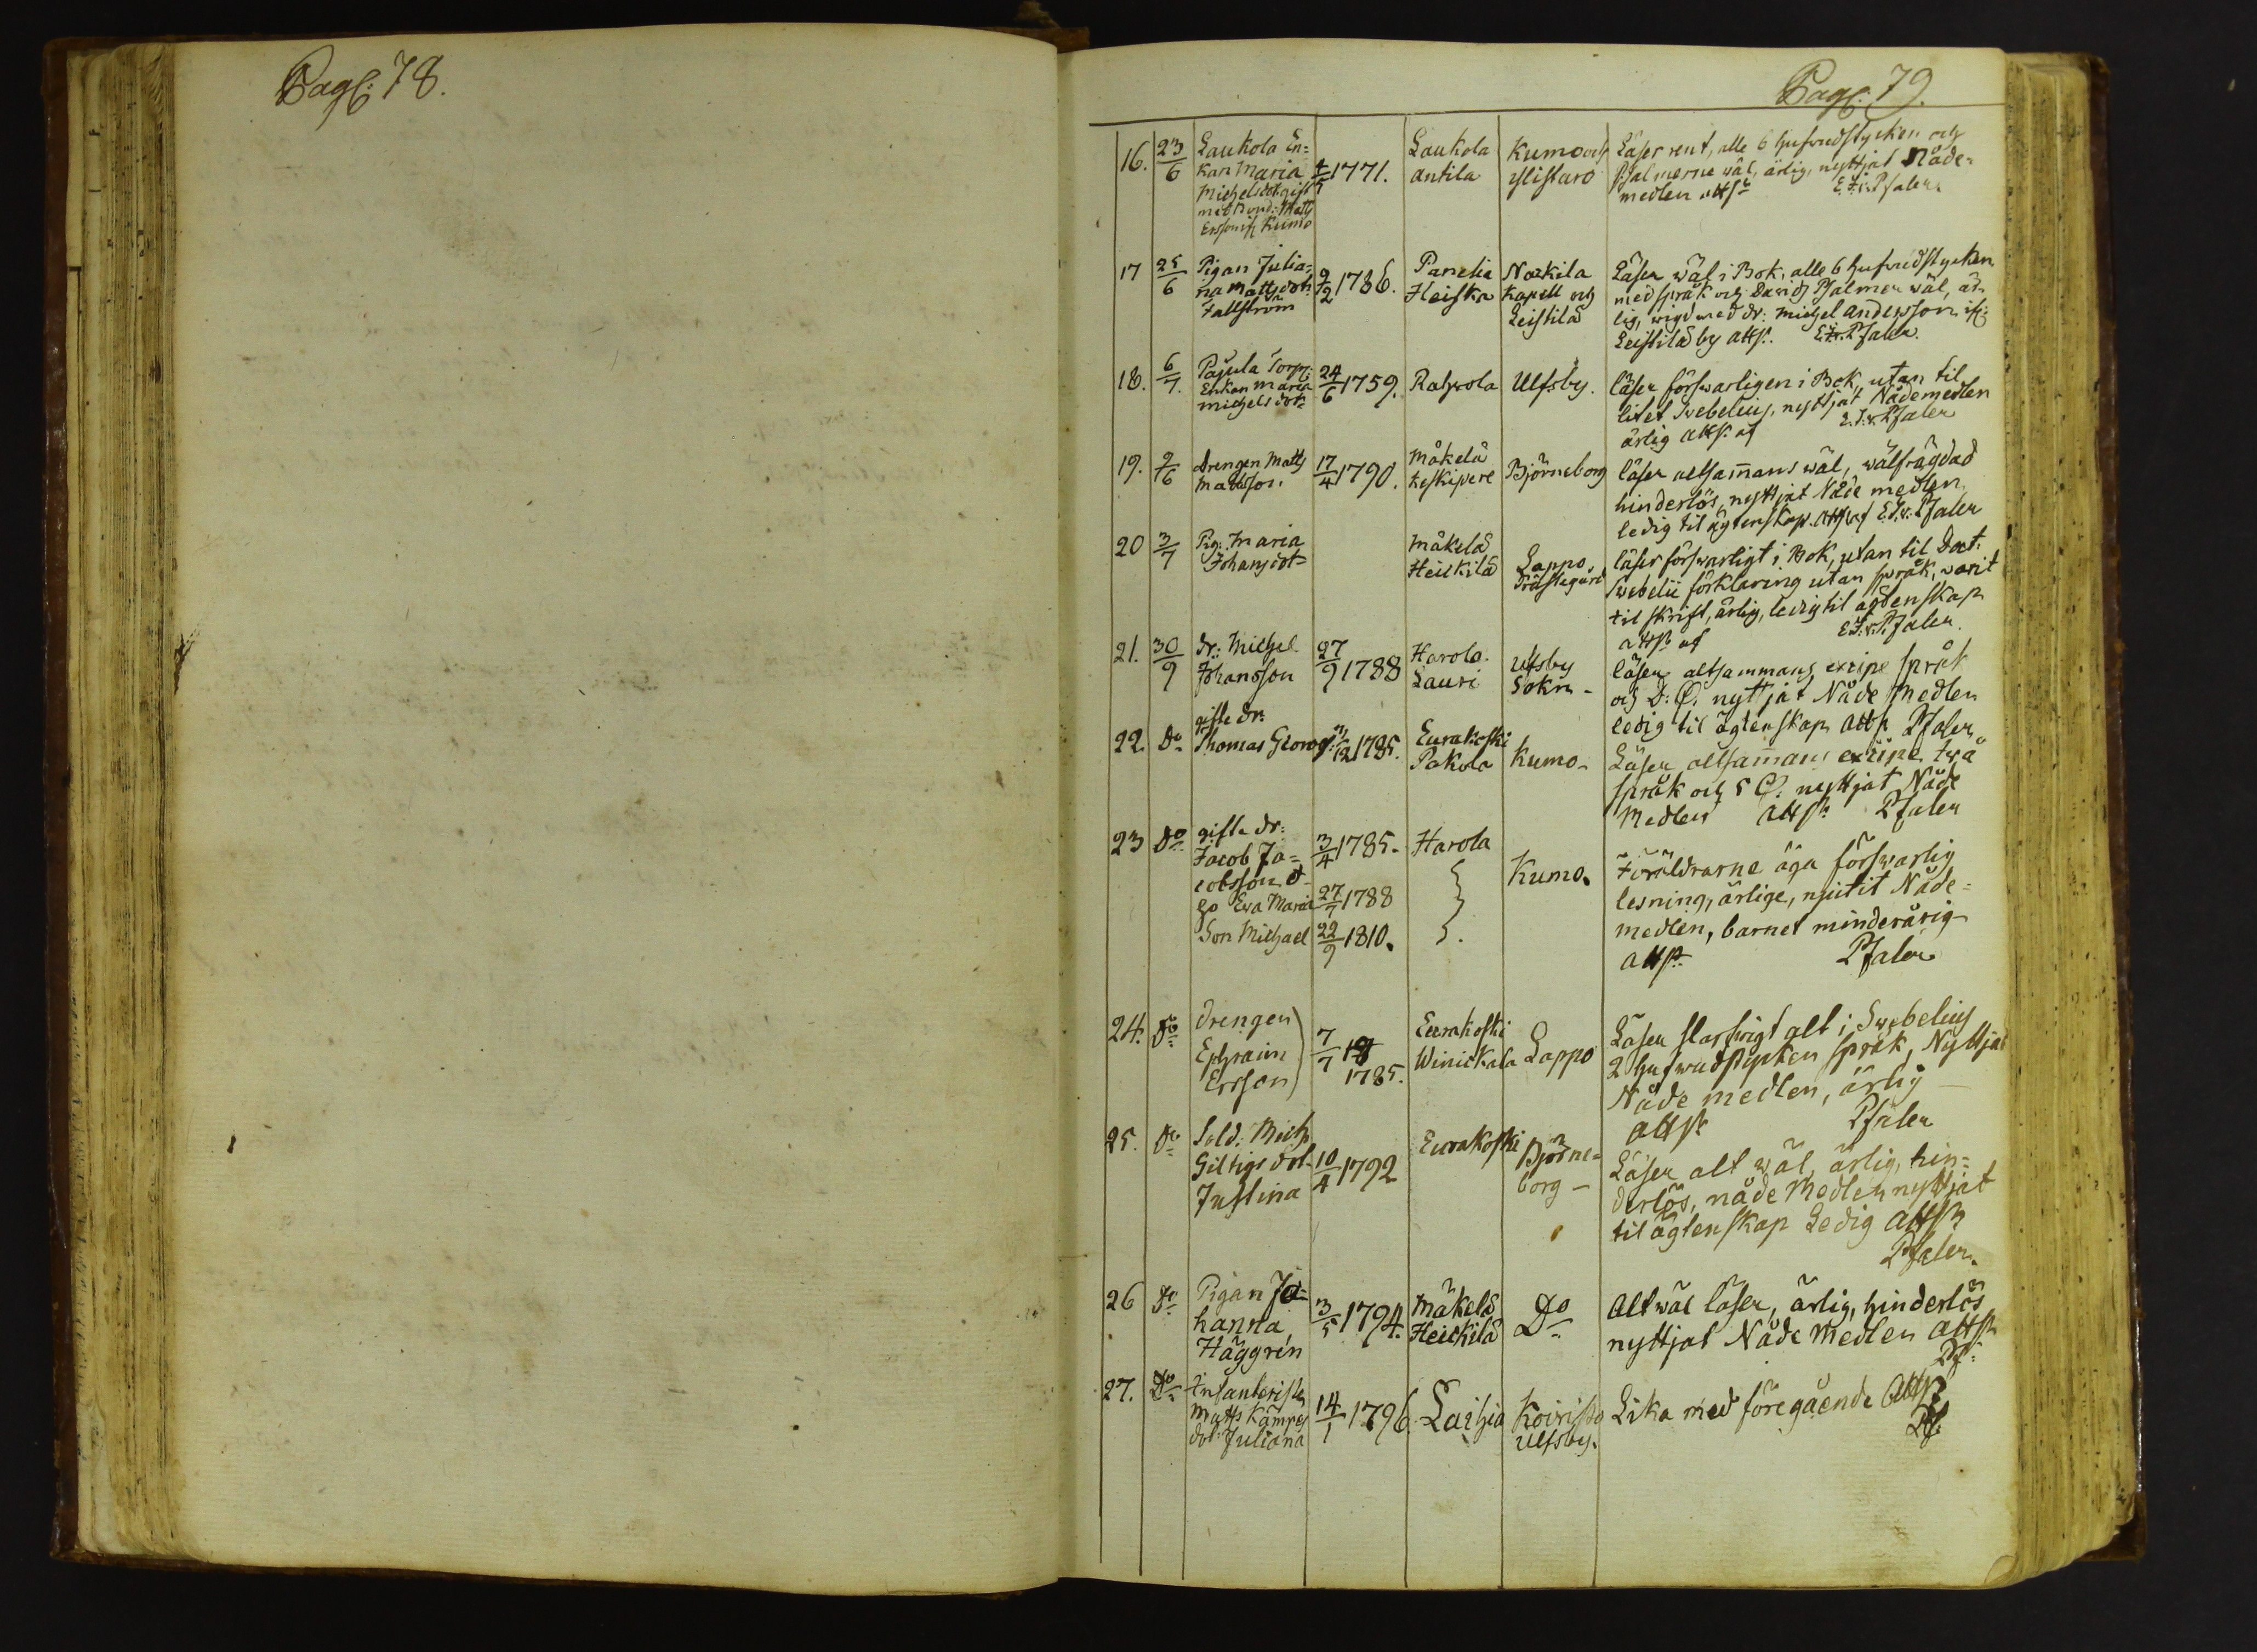 Pag: 78.
Pag: 79.
16. 23/6 Laukola En=
kan Maria
Michelsdot gift
med Bond: Matts
Ersson if: Kumo
4/5 1771.
Laukola
Antila
Kumo och
Ylistaro
Läser rent, alle 6 hufvudstycken och
Psalmerne wäl, ärlig, nyttjat Nåde=
medlen attst. E. J. v. Pfaler
17 25/6 Pigan Julia=
na Mattsdotr
Fallström
9/2 1786.
Panelia
Heiska
Nackila
Kapell och
Leistilä
Läser wäl i Bok, alle 6 hufvudstycken
med språk och Davids Psalmer wäl, är=
lig, wigd med Dr: Michel Andersson if:
Leistilä by attst. E. J. v. Pfaler
18. 6/7. Pajula Torp:
Enkan Maria
Michelsdotr
24/6 1759.
Rahvola
Ulfsby.
läser förswarligen i Bok, utan til
litet Svebelius, nyttjat Nådemedlen
ärlig attst. af E. J. v. Pfaler
19. 9/6 Drengen Matts
Mattsson.
17/4 1790.
Mäkelä
Keskipere
Björneborg
läser altsammans wäl, wälfrägdad
hinderlös, nyttjat Nåde medlen
ledig til ägtenskap. attst. af E. J. v. Pfaler
20 3/7 Pig: Maria
Johansdot=
Mäkelä
Heickilä
Lappo
Prästegård
läser förswarligt i Bok, utan til Doct.
Swebelii förklaring utan språk, varit
til skrift, ärlig, ledig til ägtenskap
attst. af E. J. v. Pfaler.
21. 30/9 Dr: Michel
Johansson
27/9 1788
Harola.
Lauri
Ulfsby
Sokn-
läser altsammans exipe språk
och D: Ps. nyttjat Nåde Medlen
ledig til ägtenskap attst. Pfaler
22. Do gifte Dr:
Thomas Georgs:
21/12 1785.
Eurakoski
Pakola
Kumo-
Läser altsammans exipe twå
språk och 5 Ps. nyttjat Nåde
Medlen attst. Pfaler
23 Do gifte Dr:
Jacob Ja=
cobsson &
Ho Eva Maria
Son Michael
3/4 1785.
27/7 1788
22/9 1810.
Harola
Kumo.
Föräldrarne äga förswarlig
lesning, ärlige, njutit Nåde=
medlen, barnet minderårig
attst. Pfaler
24. Do Drengen
Ephraim
Ersson
7/7 18
1785.
Eurakoski
Winickala
Lappo
Läser slarfwigt alt i Swebelius
2 hufwudstycken språk, Nyttjat
Nåde medlen, ärlig
attst. Pfaler
25. Do Sold: Mich
Giltigs dot.
Justina
10/4 1792
Eurakoski
Björne=
borg-
Läser alt wäl, ärlig, hin=
derlös, nåde Medlen nyttjat
til ägtenskap Ledig attst.
Pfaler.
26 Do Pigan Jo=
hanna
Häggrén
3/5 1794.
Mäkelä
Heickilä
Do
Alt wäl läser, ärlig, hinderlös
nyttjat Nåde Medlen attst.
Pf:
27. Do Infanteristen
Matts Kämpes
dot: Juliana
14/1 1796.
Laihia
Koivisto
Ulfsby.
Lika med föregående attst.
Pf: